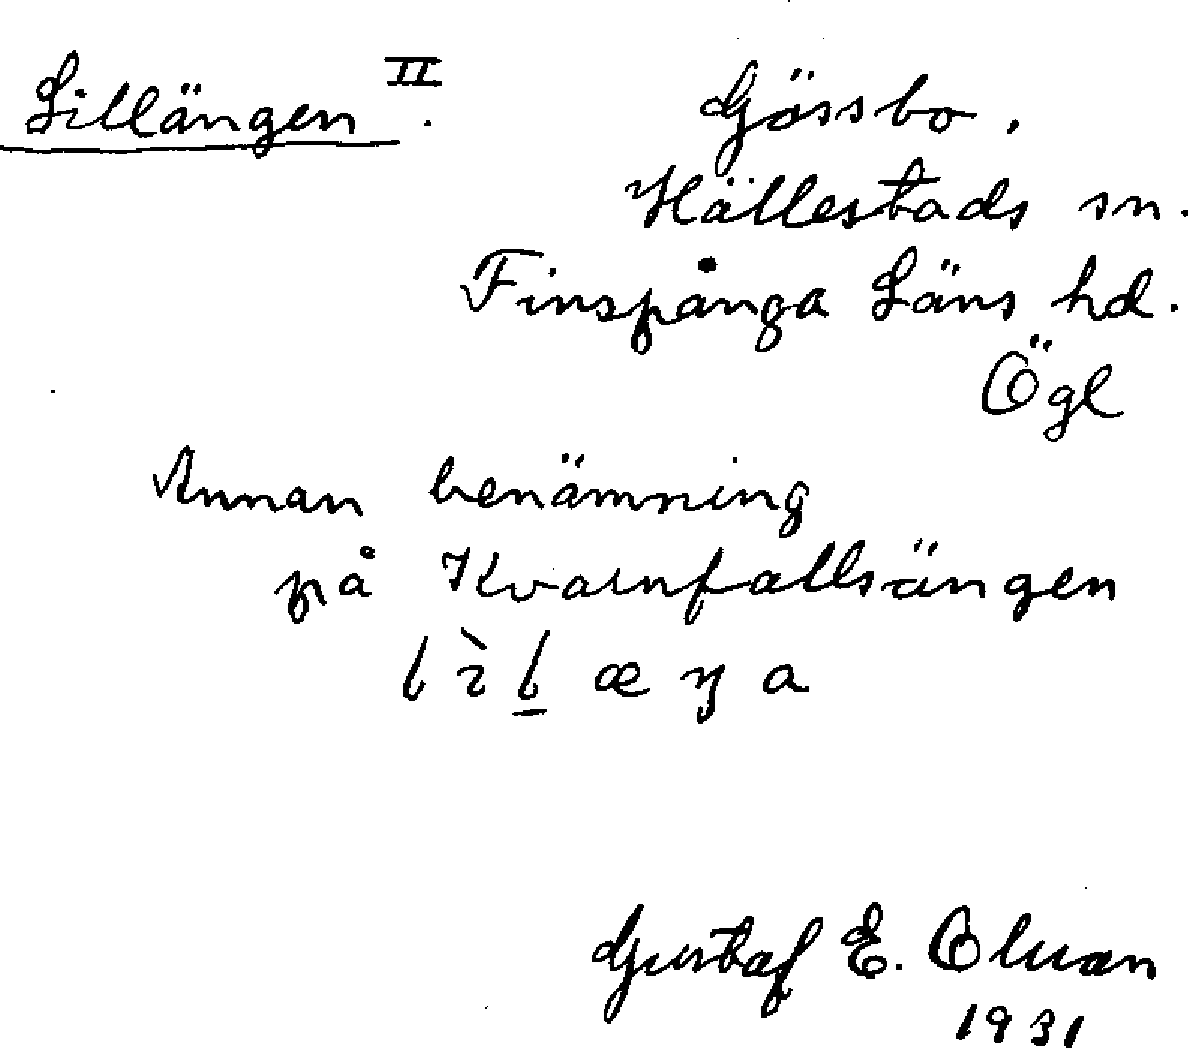 Lillängen II.
Gössbo,
Hällestads sn.
Finspånga Läns hd.
Ögl
Annan benämning
på Kvarnfallsängen
Gustaf E.
1931